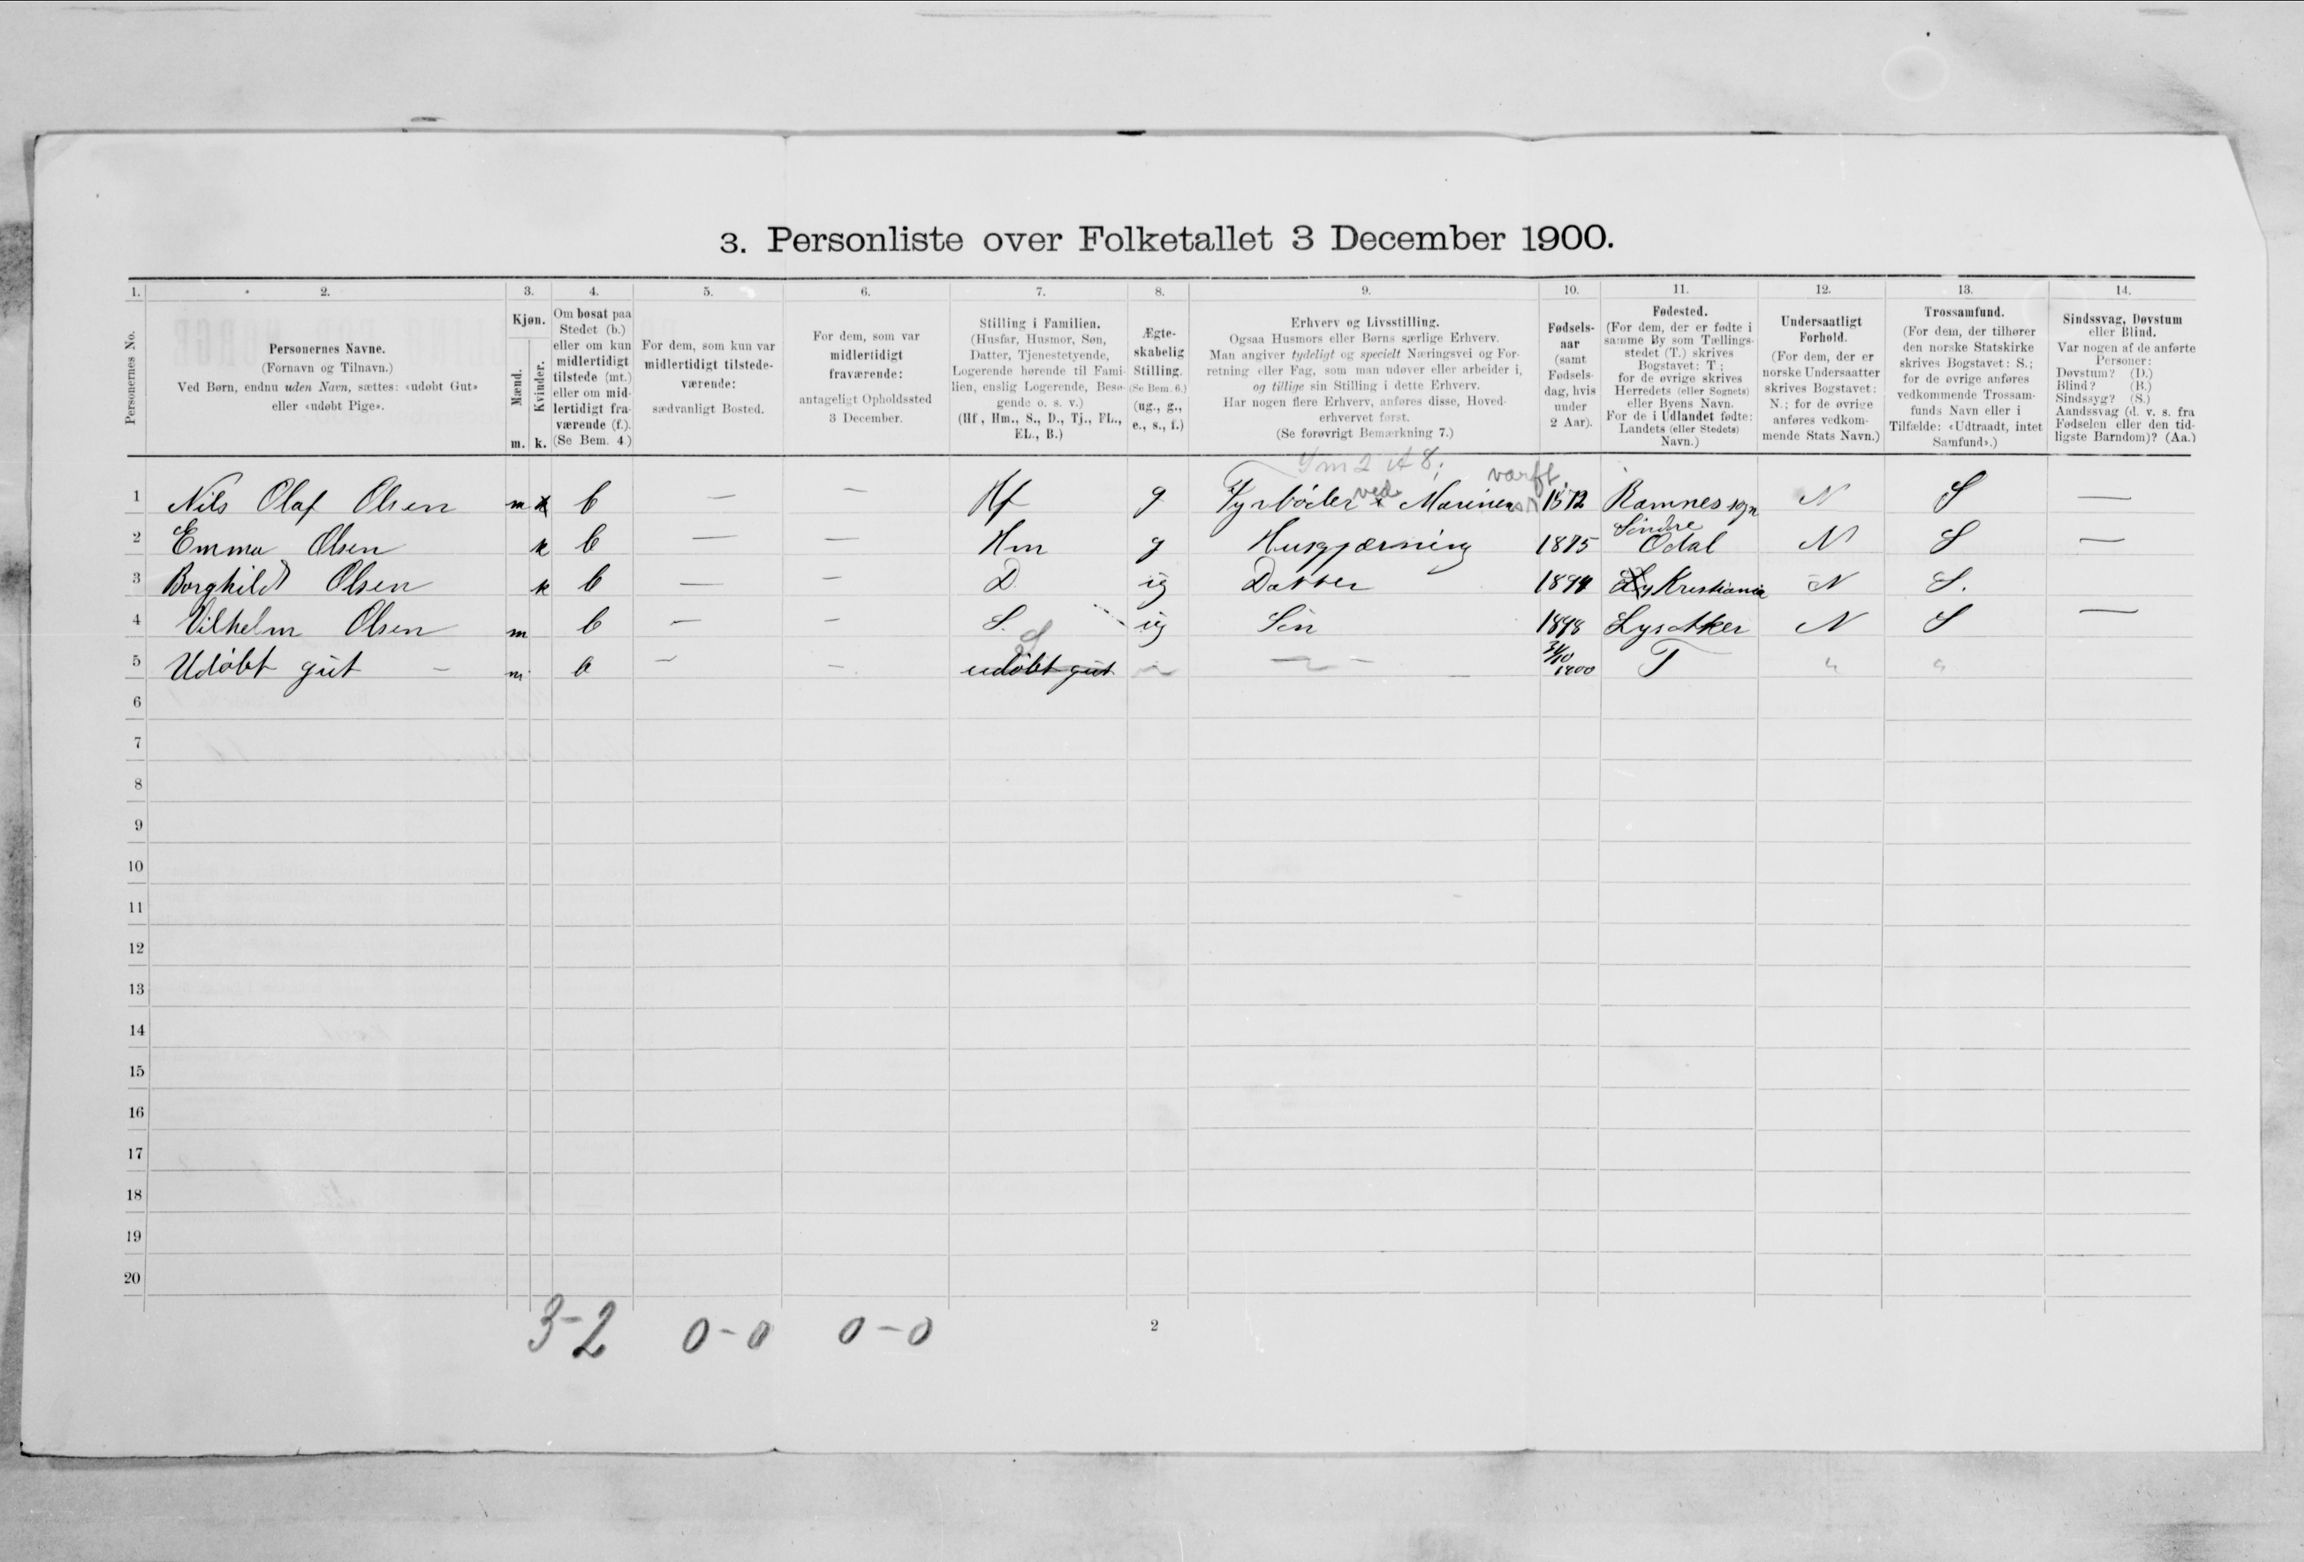 3. Personliste over Folketallet 3 December 1900.
1. 2. 3. 4. 5. 6. 7. 8. 9. 10. 11. 12. 13. 14.
Personernes No.
Personernes Navne.
(Fornavn og Tilnavn.)
Ved Børn, endnu uden Navn, sættes: «udøbt Gut»
eller «udøbt Pige».
Kjøn.
Mænd.
Kvinder.
m. k.
Om bosat paa
Stedet (b.)
eller om kun
midlertidigt
tilstede (mt.)
eller om mid-
lertidigt fra-
værende (f.).
(Se Bem. 4.)
For dem, som kun var
midlertidigt tilstede-
værende:
sædvanligt Bosted.
For dem, som var
midlertidigt
fraværende:
antageligt Opholdssted
3 December.
Stilling i Familien.
(Husfar, Husmor, Søn,
Datter, Tjenestetyende,
Logerende hørende til Fami-
lien, enslig Logerende, Besø-
gende o. s. v.)
(Hf, Hm., S., D., Tj., FL.,
EL., B.)
Ægte-
skabelig
Stilling.
(Se Bem. 6.)
(ug., g.,
e., s., f.)
Erhverv og Livsstilling.
Ogsaa Husmors eller Børns særlige Erhverv.
Man angiver tydeligt og specielt Næringsvei og For-
retning eller Fag, som man udøver eller arbeider i,
og tillige sin Stilling i dette Erhverv.
Har nogen flere Erhverv, anføres disse, Hoved-
erhvervet først.
(Se forøvrigt Bemærkning 7.)
Fødsels-
aar
(samt
Fødsels-
dag, hvis
under
2 Aar).
Fødested.
(For dem, der er fødte i
samme By som Tællings-
stedet (T.) skrives
Bogstavet: T;
for de øvrige skrives
Herredets (eller Sognets)
eller Byens Navn.
For de i Udlandet fødte:
Landets (eller Stedets)
Navn.)
Undersaatligt
Forhold.
(For dem, der er
norske Undersaatter
skrives Bogstavet:
N.; for de øvrige
anføres vedkom-
mende Stats Navn.)
Trossamfund.
(For dem, der tilhører
den norske Statskirke
skrives Bogstavet: S.;
for de øvrige anføres
vedkommende Trossam-
funds Navn eller i
Tilfælde: «Udtraadt, intet
Samfund».)
Sindssvag, Døvstum
eller Blind.
Var nogen af de anførte
Personer:
Døvstum? (D.)
Blind? (B.)
Sindssyg? (S.)
Aandssvag (d. v. s. fra
Fødselen eller den tid-
ligste Barndom)? (Aa.)
1 Nils Olaf Olsen m b — — Hf g Fyrbøder ved Marinens værft 1872 Ramnes sogn N S —
2 Emma Olsen k b — — Hm g Husgjærning 1875 Søndre Odal N S —
3 Borghild Olsen k b — — D ug Datter Kristiania N S.
4 Vilhelm Olsen m b — — S. ug Sön 1898 Lysaker N S —
5 Udöbt gut – m b — — udöbt gut S T " "
6
7
8
9
10
11
12
13
14
15
16
17
18
19
20
3-2 0-0 0-0
2